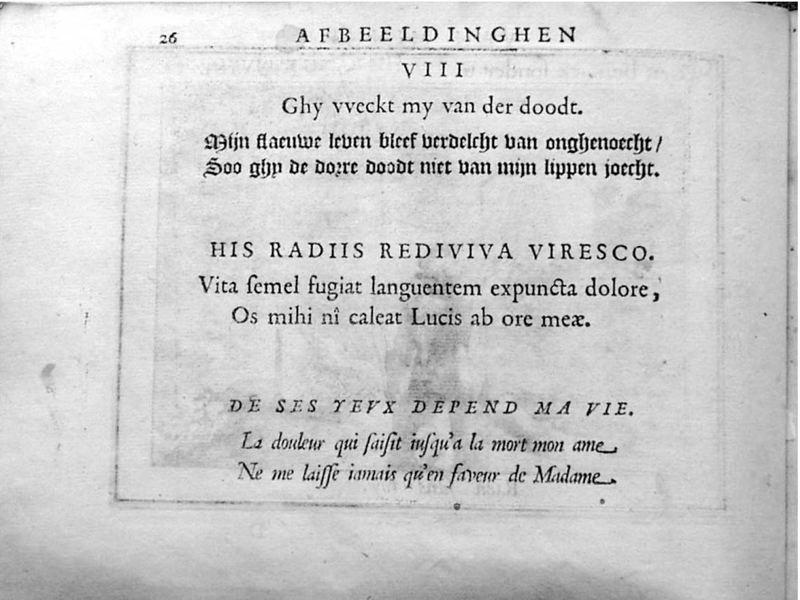 26 AFBEELDINGHEN
VIII
Ghy vveckt my van der doodt.
Mijn flaeuwe leven bleef verdelcht van onghenoecht/
Soo ghy de dorre doodt niet van mijn lippen joecht.
HIS RADIIS REDIVIVA VIRESCO.
Vita ſemel fugiat languentem expuncta dolore,
Os mihi nî caleat Lucis ab ore meæ.
DE SES YEVX DEPEND MA VIE.
La douleur qui ſaiſit iuſqu'a la mort mon ame
Ne me laiſſe iamais qu'en faveur de Madame.